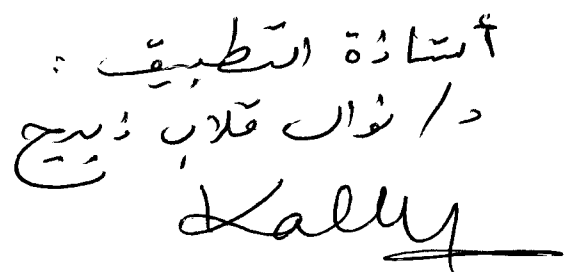 أستاذة التطبيق :
د/ نوال قلاب ذبيح